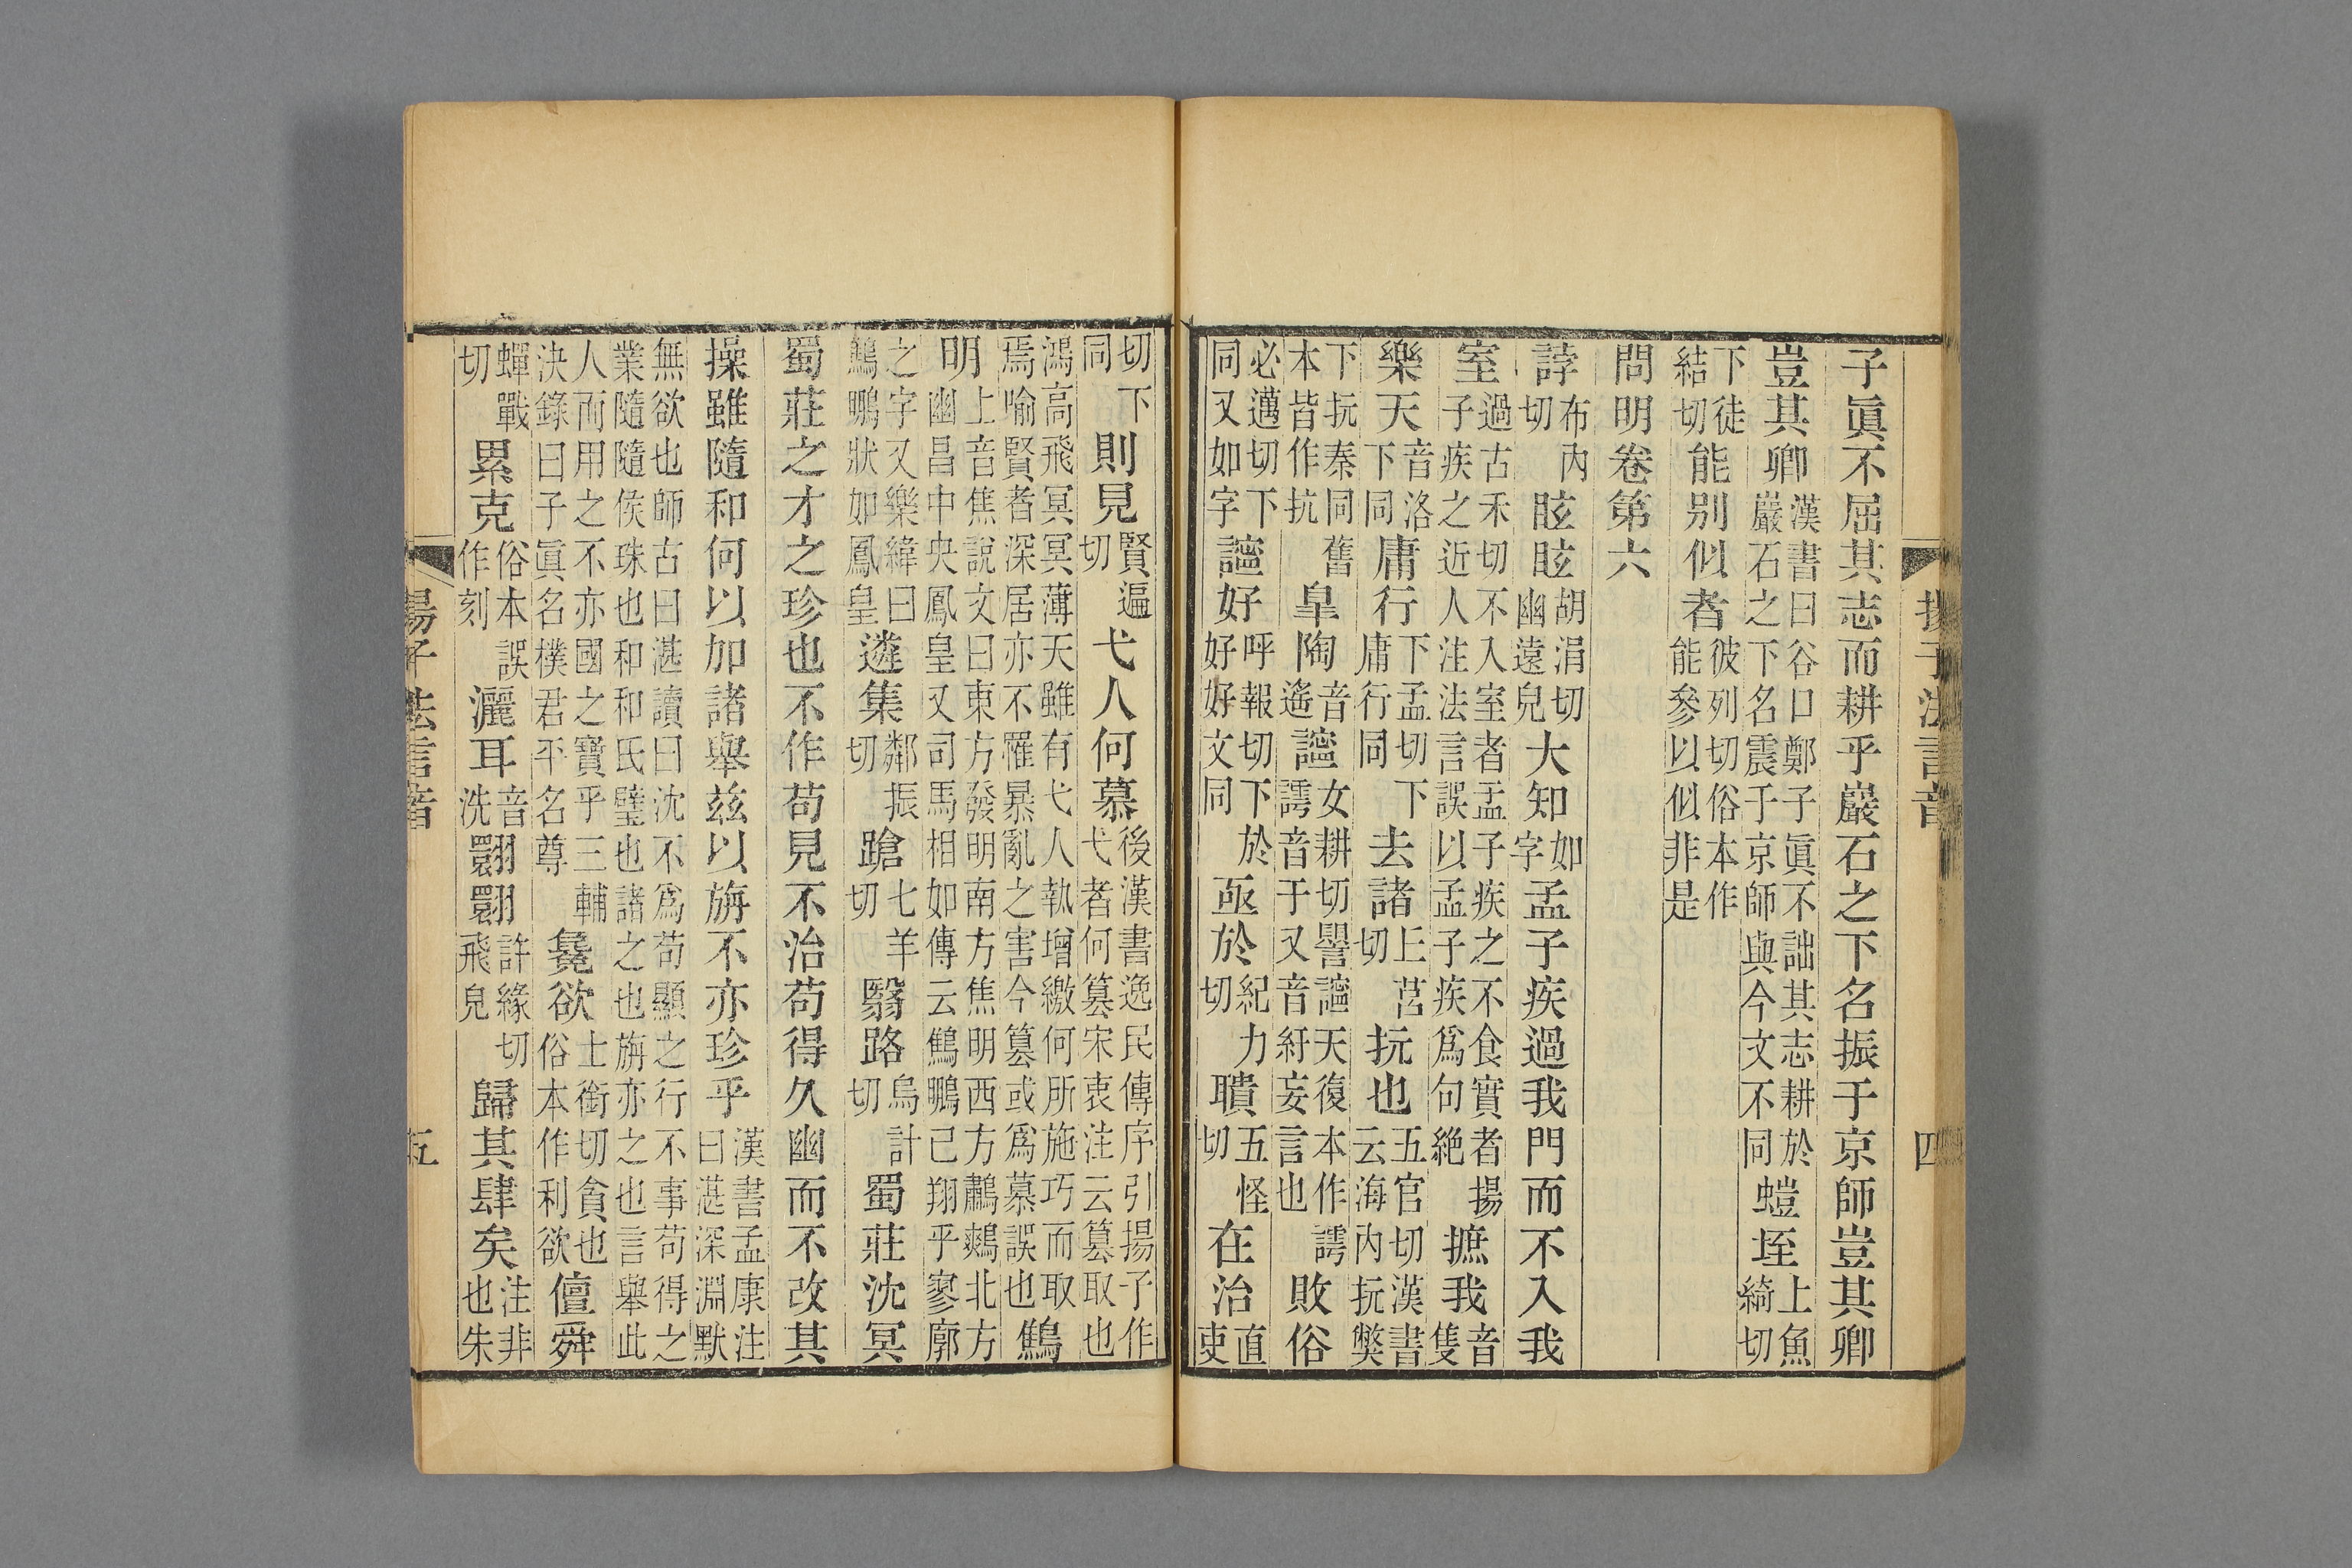 揚子法言音 四
子眞不屈其志而耕乎巖石之下名振于京師豈其卿
豈其卿漢書曰谷口鄭子眞不詘其志耕於巖石之下名震于京師與今文不同螘垤上魚綺切
下徒結切能别似者彼列切俗本作能參以似非是
問明卷第六
誖布内切眩眩胡涓切幽遠皃大知如字孟子疾過我門而不入我
室過古禾切不入室者孟子疾之不食實者揚子疾之近人注法言誤以孟子疾爲句絶摭我音隻
樂天音洛下同庸行下孟切下庸行同去諸上莒切抏也五官切漢書云海内抏獘
下抏秦同舊本皆作抗皐陶音遙女耕切譽天復本作謣謣音于又音紆妄言也敗俗
必邁切下同又如字好呼報切下於好好文同亟於紀力切聵五怪切在治直吏
切下同則見賢遍切弋人何慕後漢書逸民傳序引揚子作弋者何篡宋衷注云篡取也
鴻高飛冥冥薄天雖有弋人執增繳何所施巧而取焉喻賢者深居亦不罹暴亂之害今篡或爲慕誤也鷦
明上音焦說文曰東方發明南方焦明西方鷫鷞北方幽昌中央鳳皇又司馬相如傳云鷦鵬已翔乎寥廓
之字又樂緯曰鷦鵬狀如鳳皇遴集鄰振切蹌七羊切翳路烏計切蜀莊沈冥
蜀莊之才之珍也不作苟見不治苟得久幽而不改其
操雖隨和何以加諸舉兹以旃不亦珍乎漢書孟康注曰湛深淵默
無欲也師古曰湛讀曰沈不爲苟顯之行不事苟得之業隨隨侯珠也和和氏璧也諸之也旃亦之也言舉此
人而用之不亦國之寶乎三輔決錄曰子眞名樸君平名尊毚欲士銜切貪也俗本作利欲儃舜
蟬戰切累克俗本誤作刻灑耳音洗翾翾許緣切飛皃歸其肆矣注非也朱
揚子法言音 五